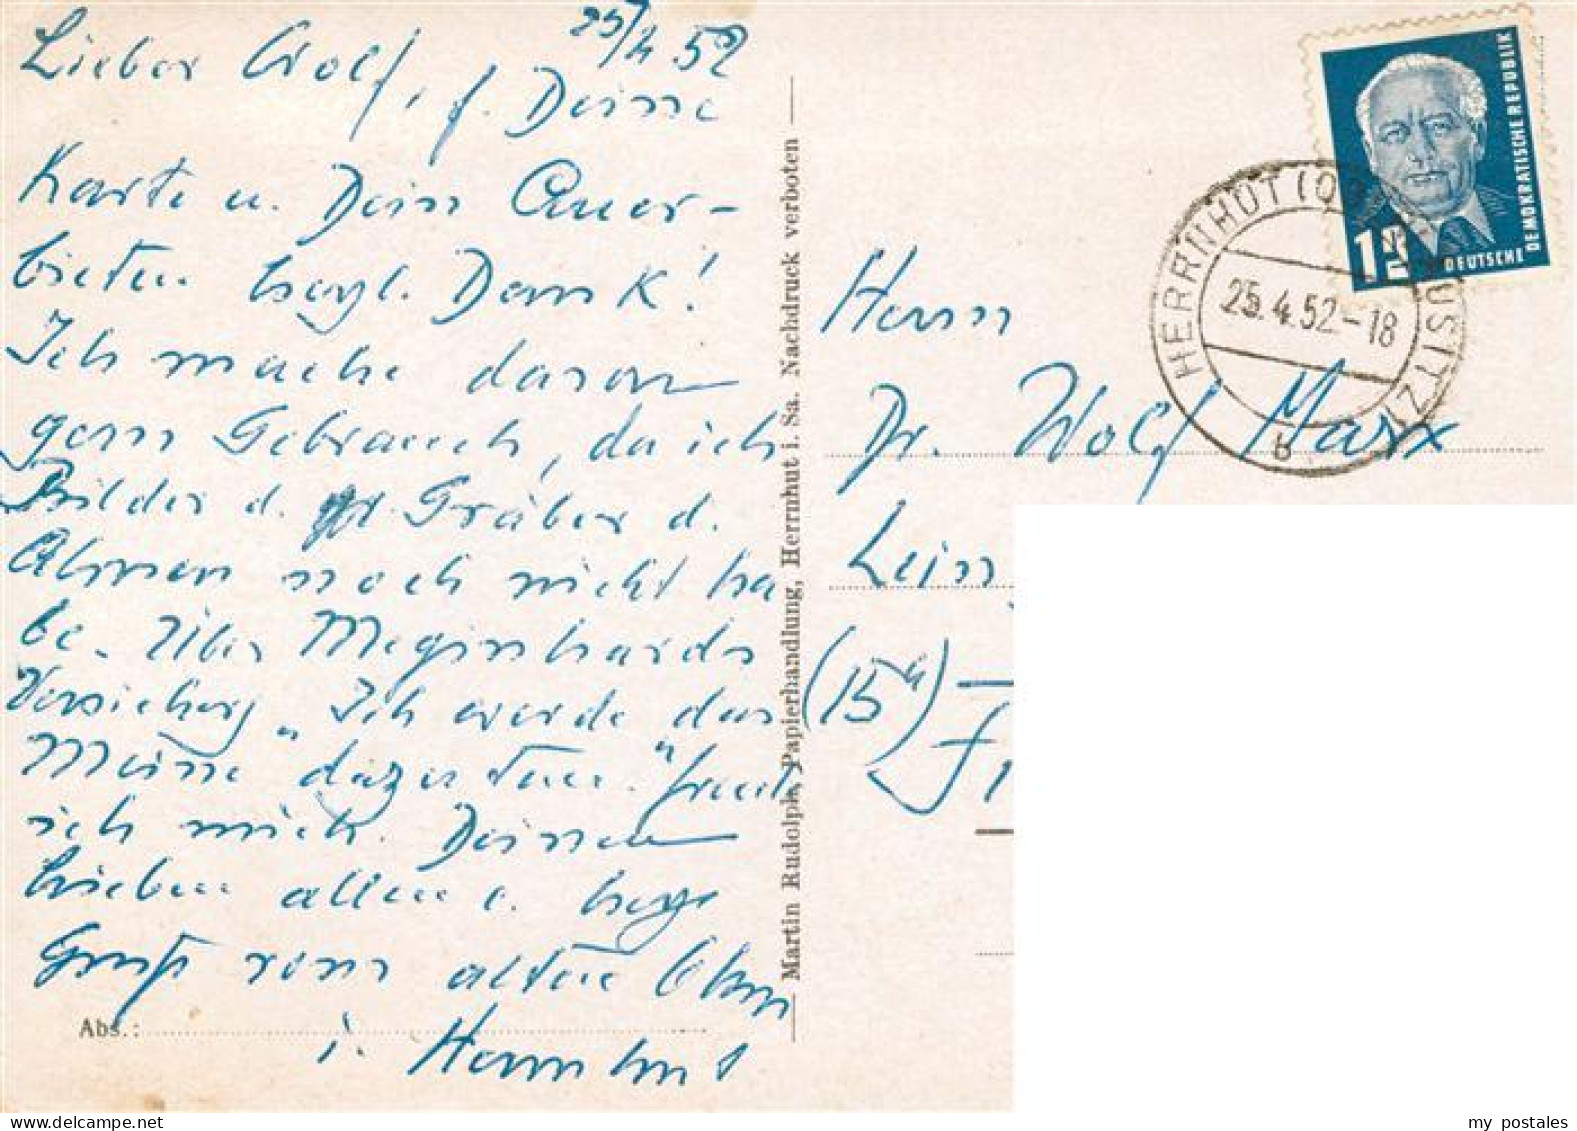 25/4 52
Lieber Wolf, f. Deine
Karte u. Dein Aner-
bieten herzl. Dank!
Ich mache davon
gern Gebrauch, da ich
Bilder d. Gräber d.
Ahnen noch nicht ha
be. Über Meginhards
Versicherg „Ich werde das
Meine dazu tun" freute
ich mich. Deinen
Lieben allen u. herzl
Gruß vom alten Ohm
Abs.:
i. Herrnhut
Martin Rudolph, Papierhandlung, Herrnhut i. Sa. Nachdruck verboten
DEUTSCHE DEMOKRATISCHE REPUBLIK
HERRNHUT (OB
25.4.52-18
b
Herrn
Dr. Wolf Marx
Lein
(15a)
my postales